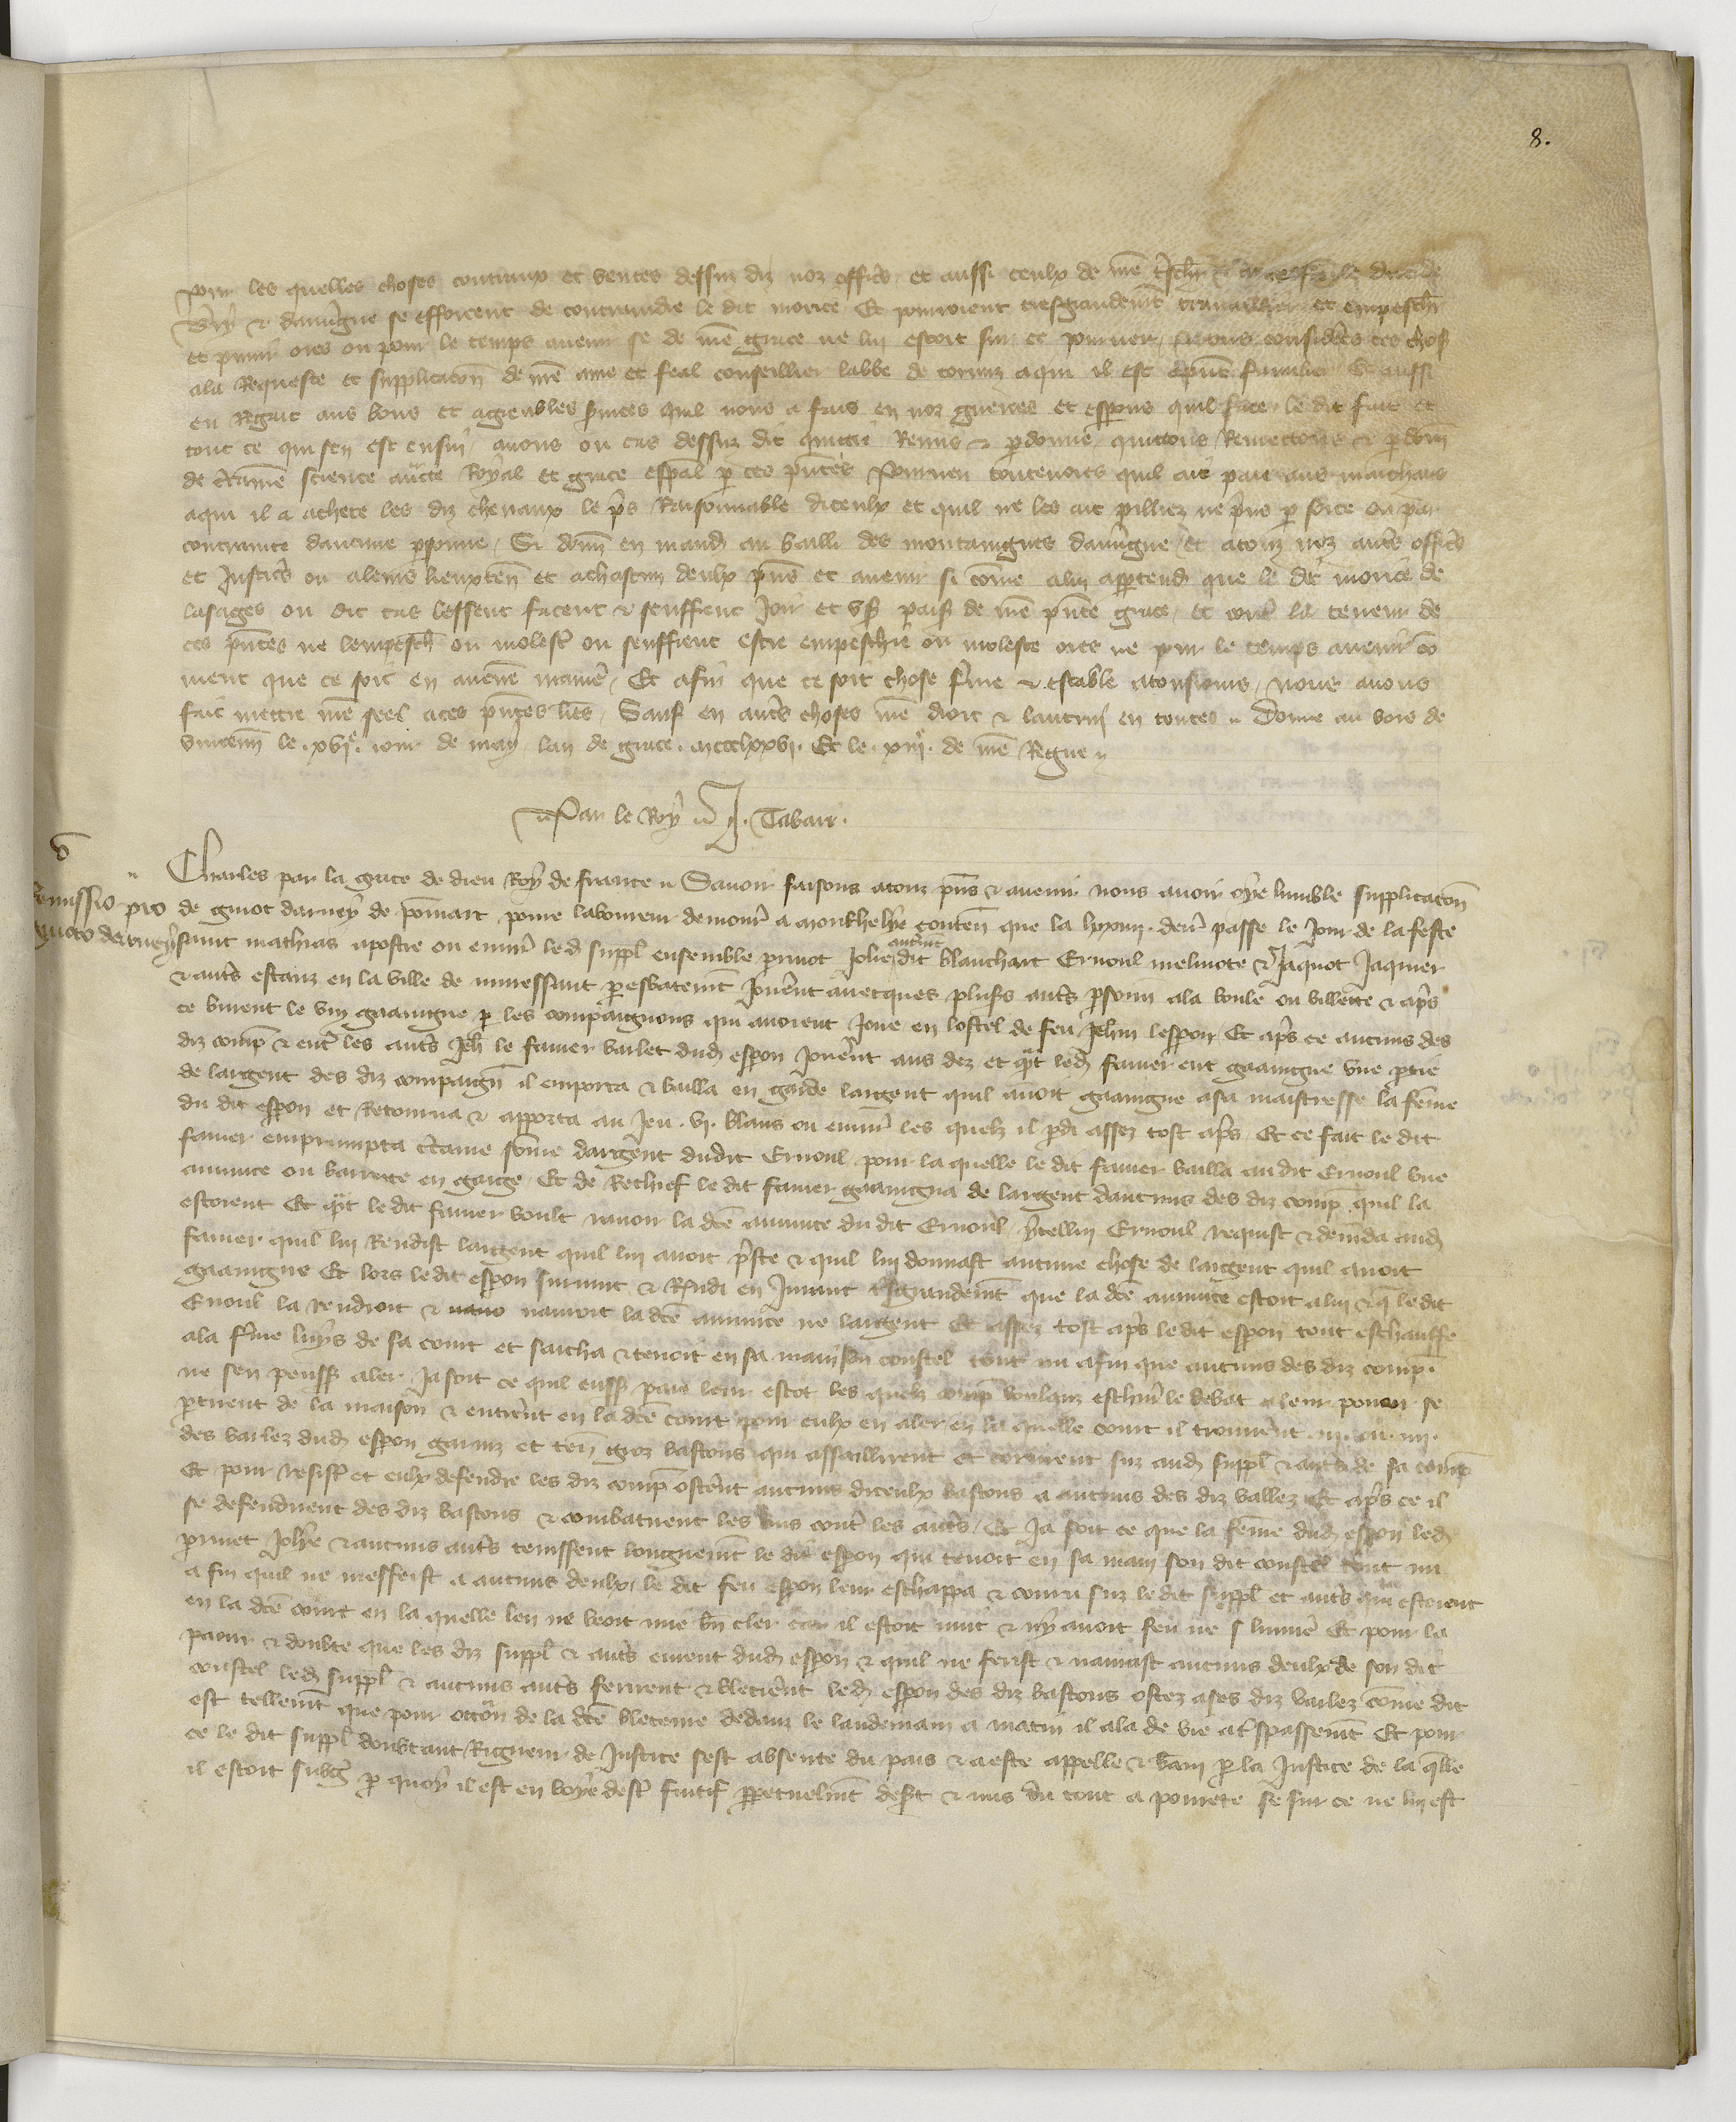 8.
pour les quelles choses contraux et ventes dessus diz noz offic̄s et aussi ceulx de nr̄e
B̄ry & dauūgne se efforcent de contraindre le dit morice Et pourroient tresgrandemēt travaillier et empeschr̄
et punir ores ou pour le temps auenir se de nr̄e grace ne lui estoit sur ce pourueu. Nous considerēs ces chos̄
ala Requeste et supplicacōn de nr̄e ame et feal conseillier labbe de aqui il est a pn̄t familier Et aussi
en Regart aus bons et agreables s̄uices quil nous a fais en noz guerres et esp̄ons quil face. le dit fait et
tout ce qui sen est ensui auons ou cas dessus dit quittie Remis & p̄donne quittons Remectons & p̄donn̄
de c̄taīne science auct̄e Royal et grace esp̄al p̄ ces pn̄tes Pourueu touteuoies quil ait paie aus marchans
aqui il a achete les diz cheuaux le p̄s Raisonnable diceulx et quil ne les ait pilliez ne p̄ns p̄ force ou par
contrainte daucune p̄sonne. Si donn̄ en mand̄ au bailli des montaignes dauūgne et atouz noz aut̄s offic̄s
et Justic̄s ou aleurs lieuxten̄ et achascun deulx pn̄s et auenir si cōme alui app̄tend̄ que le dit morice de
lasages ou dit cas lessent facent & seuffrent Joir et vs̄ paisb̄ de nr̄e pn̄te grace. Et cont̄ la teneur de
ces pn̄tes ne lempesch̄ ou molest̄ ou seuffrent estre empeschie ou moleste ores ne pour le temps auenir cō
ment que ce soit en aucune manie᷑. Et afin que ce soit chose f̄me & estable atousiours, nous auons
fait mettre nr̄e seel aces pn̄tes lr̄es. Sauf en aut̄s choses nr̄e droit & lautruy en toutes. Donne au bois de
vincenn̄ le xvie. iour de may lan de grace. mccclxxvi. Et le xiiie. de nr̄e Regne
Par le Roy J. Tabari.
Charles par la grace de dieu Roy de france Sauoir faisons atouz pn̄s & auenir nous auoir oye lumble supplicacōn
Remissio pro
de guiot darney de pōmart poure laboureur demour̄ a conten̄ que la lxxiiii. derr̄ passe le Jour de la feste
guioto derney
saint mathias apostre ou enuir̄ led̄ suppl̄ ensemble p̄rinot Jolie
autremt̄
dit blanchart Ernoul melinote & Jaquot Jaquier
& aut̄s estanz en la ville de p̄ esbatemēt Jouer̄nt auecques plus̄s aut̄s p̄sonn̄ ala boule ou billette & ap̄s
ce burent le vin gaaingne p̄ les compaignons qui auoient Joue en lostel de feu Jehan lespon. Et ap̄s ce aucuns des
diz comp̄ & ent̄ les aut̄s Jeh̄ le fauier vailet dud̄ espon Jouer̄nt aus dez et quāt led̄ fauier eut gaaingne vne p̄tie
de largent des diz compaign̄ il emporta & bailla en garde largent quil auoit gaaingne asa maistresse la fēme
du dit espon et Retourna & apporta au Jeu. vi. blans ou enuir̄ les quelz il p̄di assez tost ap̄s. Et ce fait le dit
fauier emprumpta c̄taine sōme dargent dudit Ernoul pour la quelle le dit fauier bailla au dit Ernoul vne
aumuce ou barrette en gaige. Et de Rechief le dit fauier gaaingna de largent daucuns des diz comp̄ quil la
estoient Et quāt ledit fauier voult rauoir la dc̄e aumuce du dit Ernoul, ycellui Ernoul requist & demāda aud̄
fauier quil lui Rendist largent quil lui auoit p̄ste & quil lui donnast aucune chose de largent quil auoit
gaaingne Et lors ledit espon suruint & Rn̄di en Jurant tres̄grandemēt que la dc̄e aumuce estoit alui & q̄ ledit
Ernoul la rendroit & nauroit la dc̄e aumuce ne largent Et assez tost ap̄s ledit espon tout eschauffe
ala f̄me luys de sa court et saicha & tenoit en sa main son coustel tout nu afin que aucuns des diz comp̄.
ne sen peuss̄ aler. Ja soit ce quil euss̄ paie leur escot les quelz comp̄ voulanz escheuer̄ le debat a leur pouoir se
p̄tirent de la maison & entrer̄nt en la dc̄e court pour eulx en aler en la quelle court il trouuer̄nt. iii. ou. iiii.
des vailez dud̄ espon garniz et ten̄ groz bastons qui assaillirent et coururent suz aud̄ suppl̄ & aut̄s de sa comp̄
Et pour resist̄ et eulx defendre les diz comp̄ oster̄nt aucuns diceulx bastons a aucuns des diz vallez Et ap̄s ce il
se defendirent des diz bastons & combatirent les vns cont̄ les aut̄s. Et Ja soit ce que la fēme dud̄ espon led̄
p̄rinet Jolie & aucuns aut̄s tenissent longuemēt le dit espon qui tenoit en sa main son dit coustel tout nu
a fin quil ne mesferist a aucuns deulx, le dit feu espon leur eschappa & couru suz le dit suppl̄ et aut̄s qui
la
estoient
en la dc̄e court en la quelle len ne veoit mie bn̄ cler car il estoit nuit & ny auoit feu ne lumier̄ Et pour la
paour & doubte que les diz suppl̄ & aut̄s eurent dud̄ espon & quil ne ferist & naurast aucuns deulx de son dit
coustel led̄ suppl̄ & aucuns aut̄s ferirent & blecier̄nt led̄ espon des diz bastons ostez ases diz vailez cōme dit
est tellemēt que pour occōn de la dc̄e bleceure dedanz le landemain a matin il ala de vie a t̄spassemēt Et pour
ce le dit suppl̄ doubtant Rigueur de Justice sest absente du pais & a este appelle & ban̄i p̄ la Justice de la q̄lle
il estoit subḡ p̄ quoy il est en voye dest̄ fuitif p̄petuelmēt des̄t & mis du tout a pourete se sur ce ne lui est